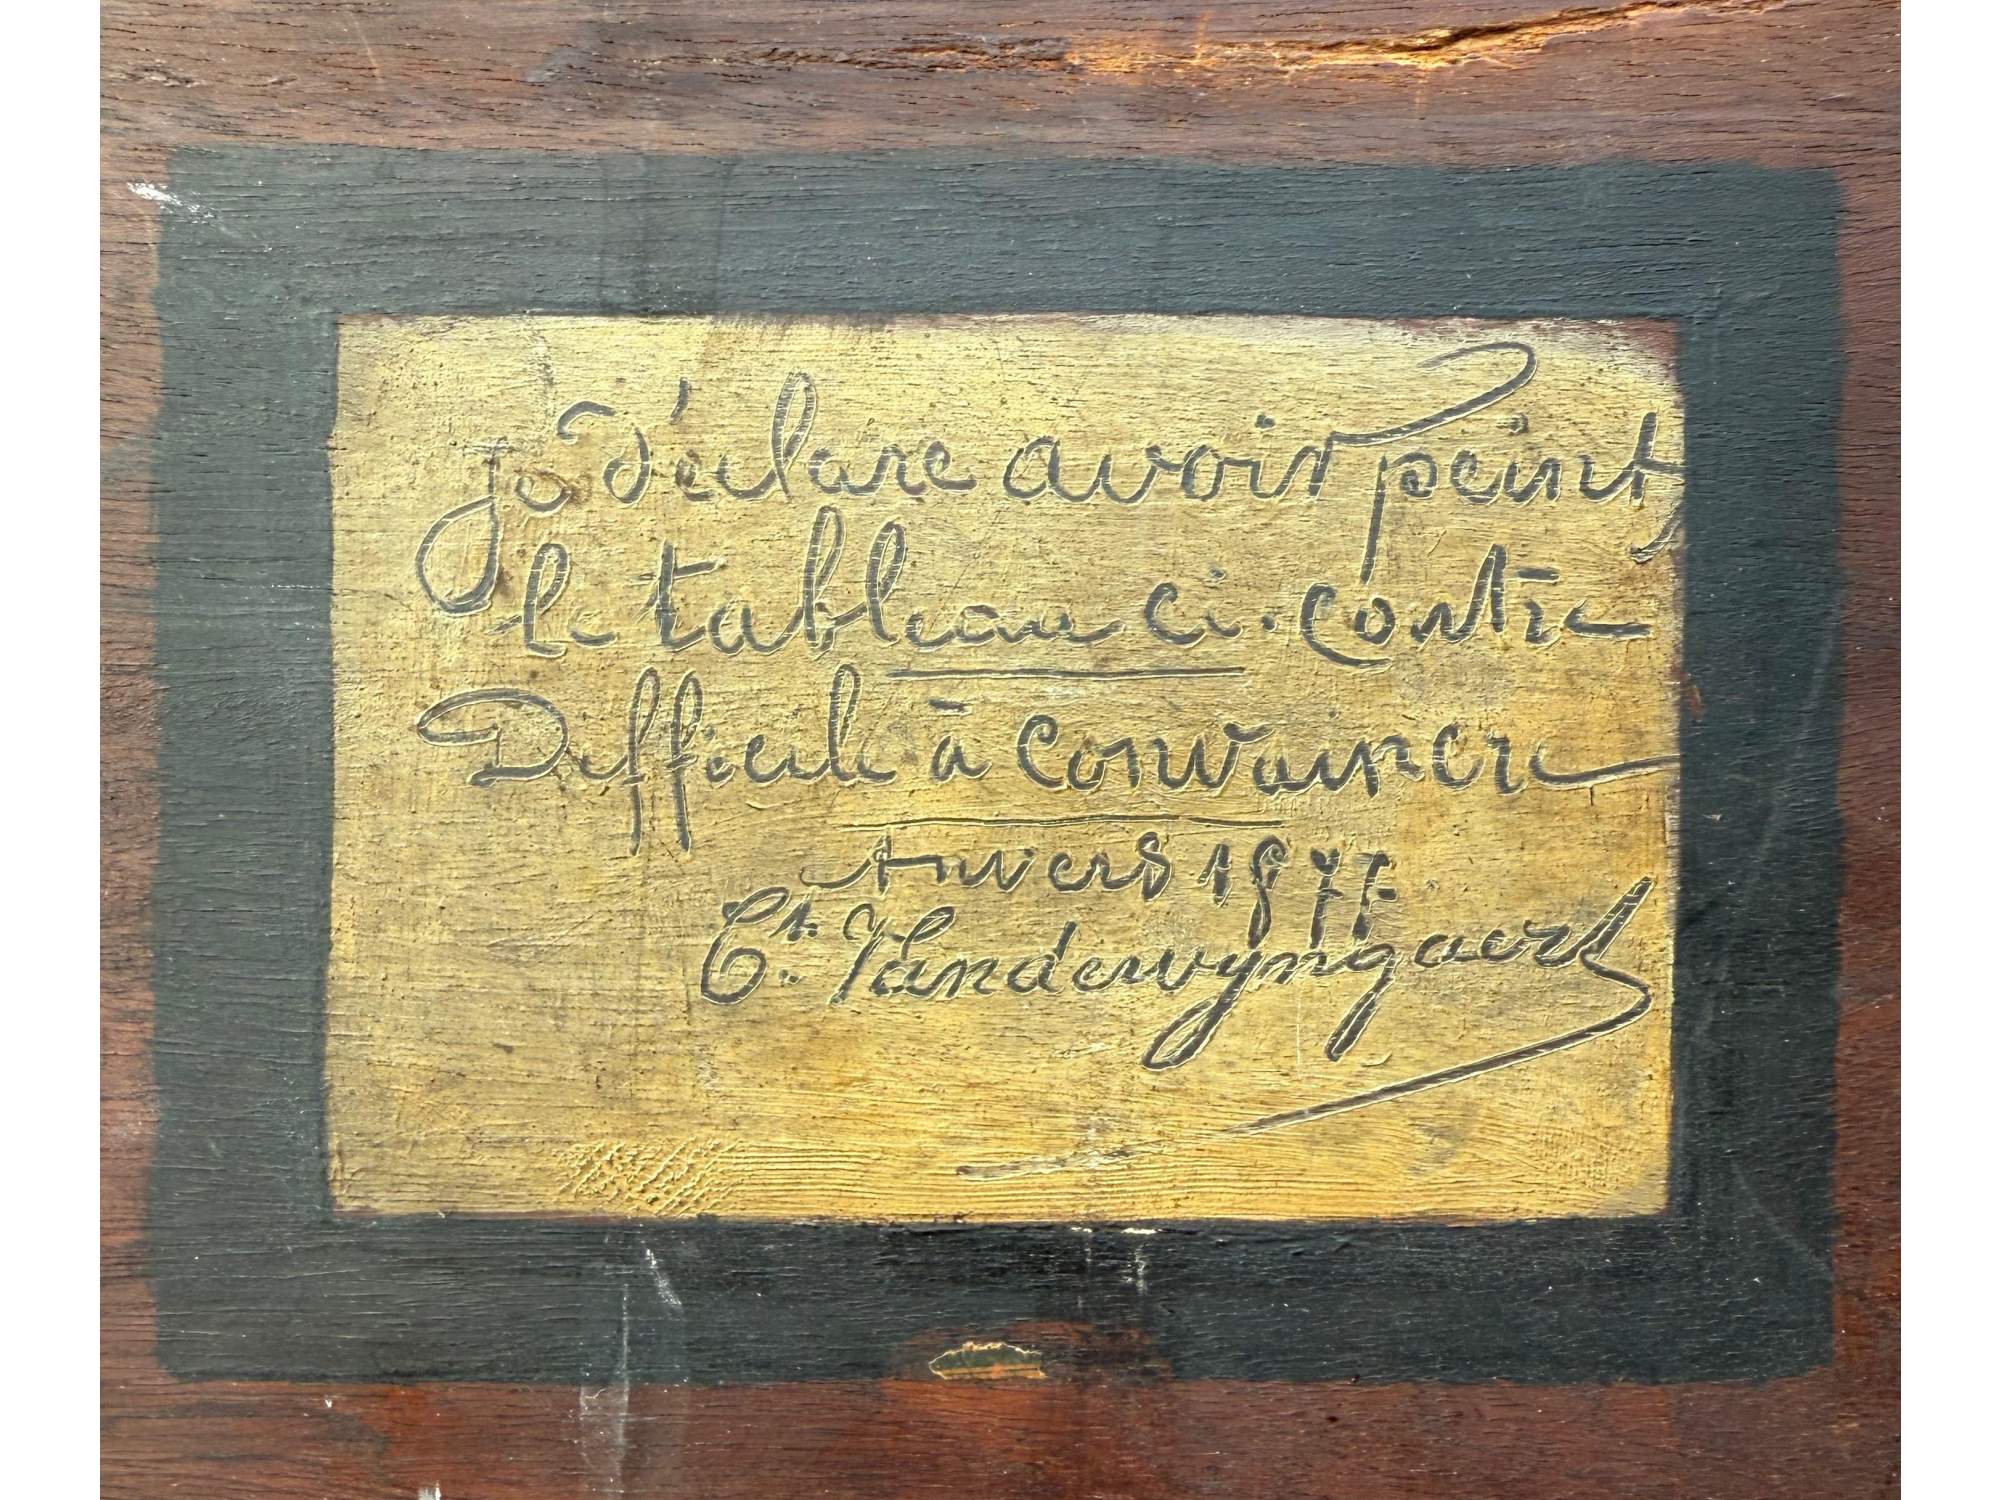 Je déclare avoir peint,
le tableau ci-contre
Difficile à Convaincre
Anvers 1877
Ct. Vanderwyngaert